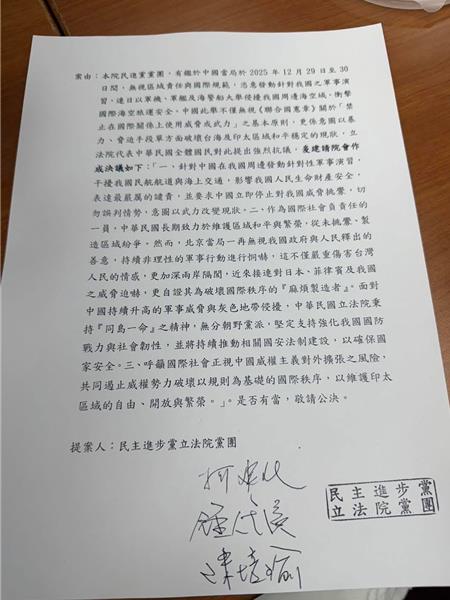 案由：本院民進黨黨團，有鑑於中國當局於 2025 年 12 月 29 日至 30
日間，無視區域責任與國際規範，恣意發動針對我國之軍事演
習，連日以軍機、軍艦及海警船大舉侵擾我國周邊海空域，衝擊
國際海空航運安全。中國此舉不僅無視《聯合國憲章》關於「禁
止在國際關係上使用威脅或武力」之基本原則，更係意圖以暴
力、脅迫手段單方面破壞台海及印太區域和平穩定的現狀，立
法院代表中華民國全體國民對此提出強烈抗議，爰建請院會作
成決議如下：「一、針對中國在我國周邊發動針對性軍事演習，
干擾我國民航航道與海上交通，影響我國人民生命財產安全，
表達最嚴厲的譴責，並要求中國立即停止對我國威脅挑釁，切
勿誤判情勢，意圖以武力改變現狀。二、作為國際社會負責任的
一員，中華民國長期致力於維護區域和平與繁榮，從未挑釁、製
造區域紛爭。然而，北京當局一再無視我國政府與人民釋出的
善意，持續非理性的軍事行動進行恫嚇，這不僅嚴重傷害台灣
人民的情感，更加深兩岸隔閡，近來接連對日本、菲律賓及我國
之威脅迫嚇，更自證其為破壞國際秩序的『麻煩製造者』。面對
中國持續升高的軍事威脅與灰色地帶侵擾，中華民國立法院秉
持『同島一命』之精神，無分朝野黨派，堅定支持強化我國國防
戰力與社會韌性，並將持續推動相關國安法制建設，以確保國
家安全。三、呼籲國際社會正視中國威權主義對外擴張之風險，
共同遏止威權勢力破壞以規則為基礎的國際秩序，以維護印太
區域的自由、開放與繁榮。」。是否有當，敬請公決。
提案人：民主進步黨立法院黨團
民主進步黨
立法院黨團